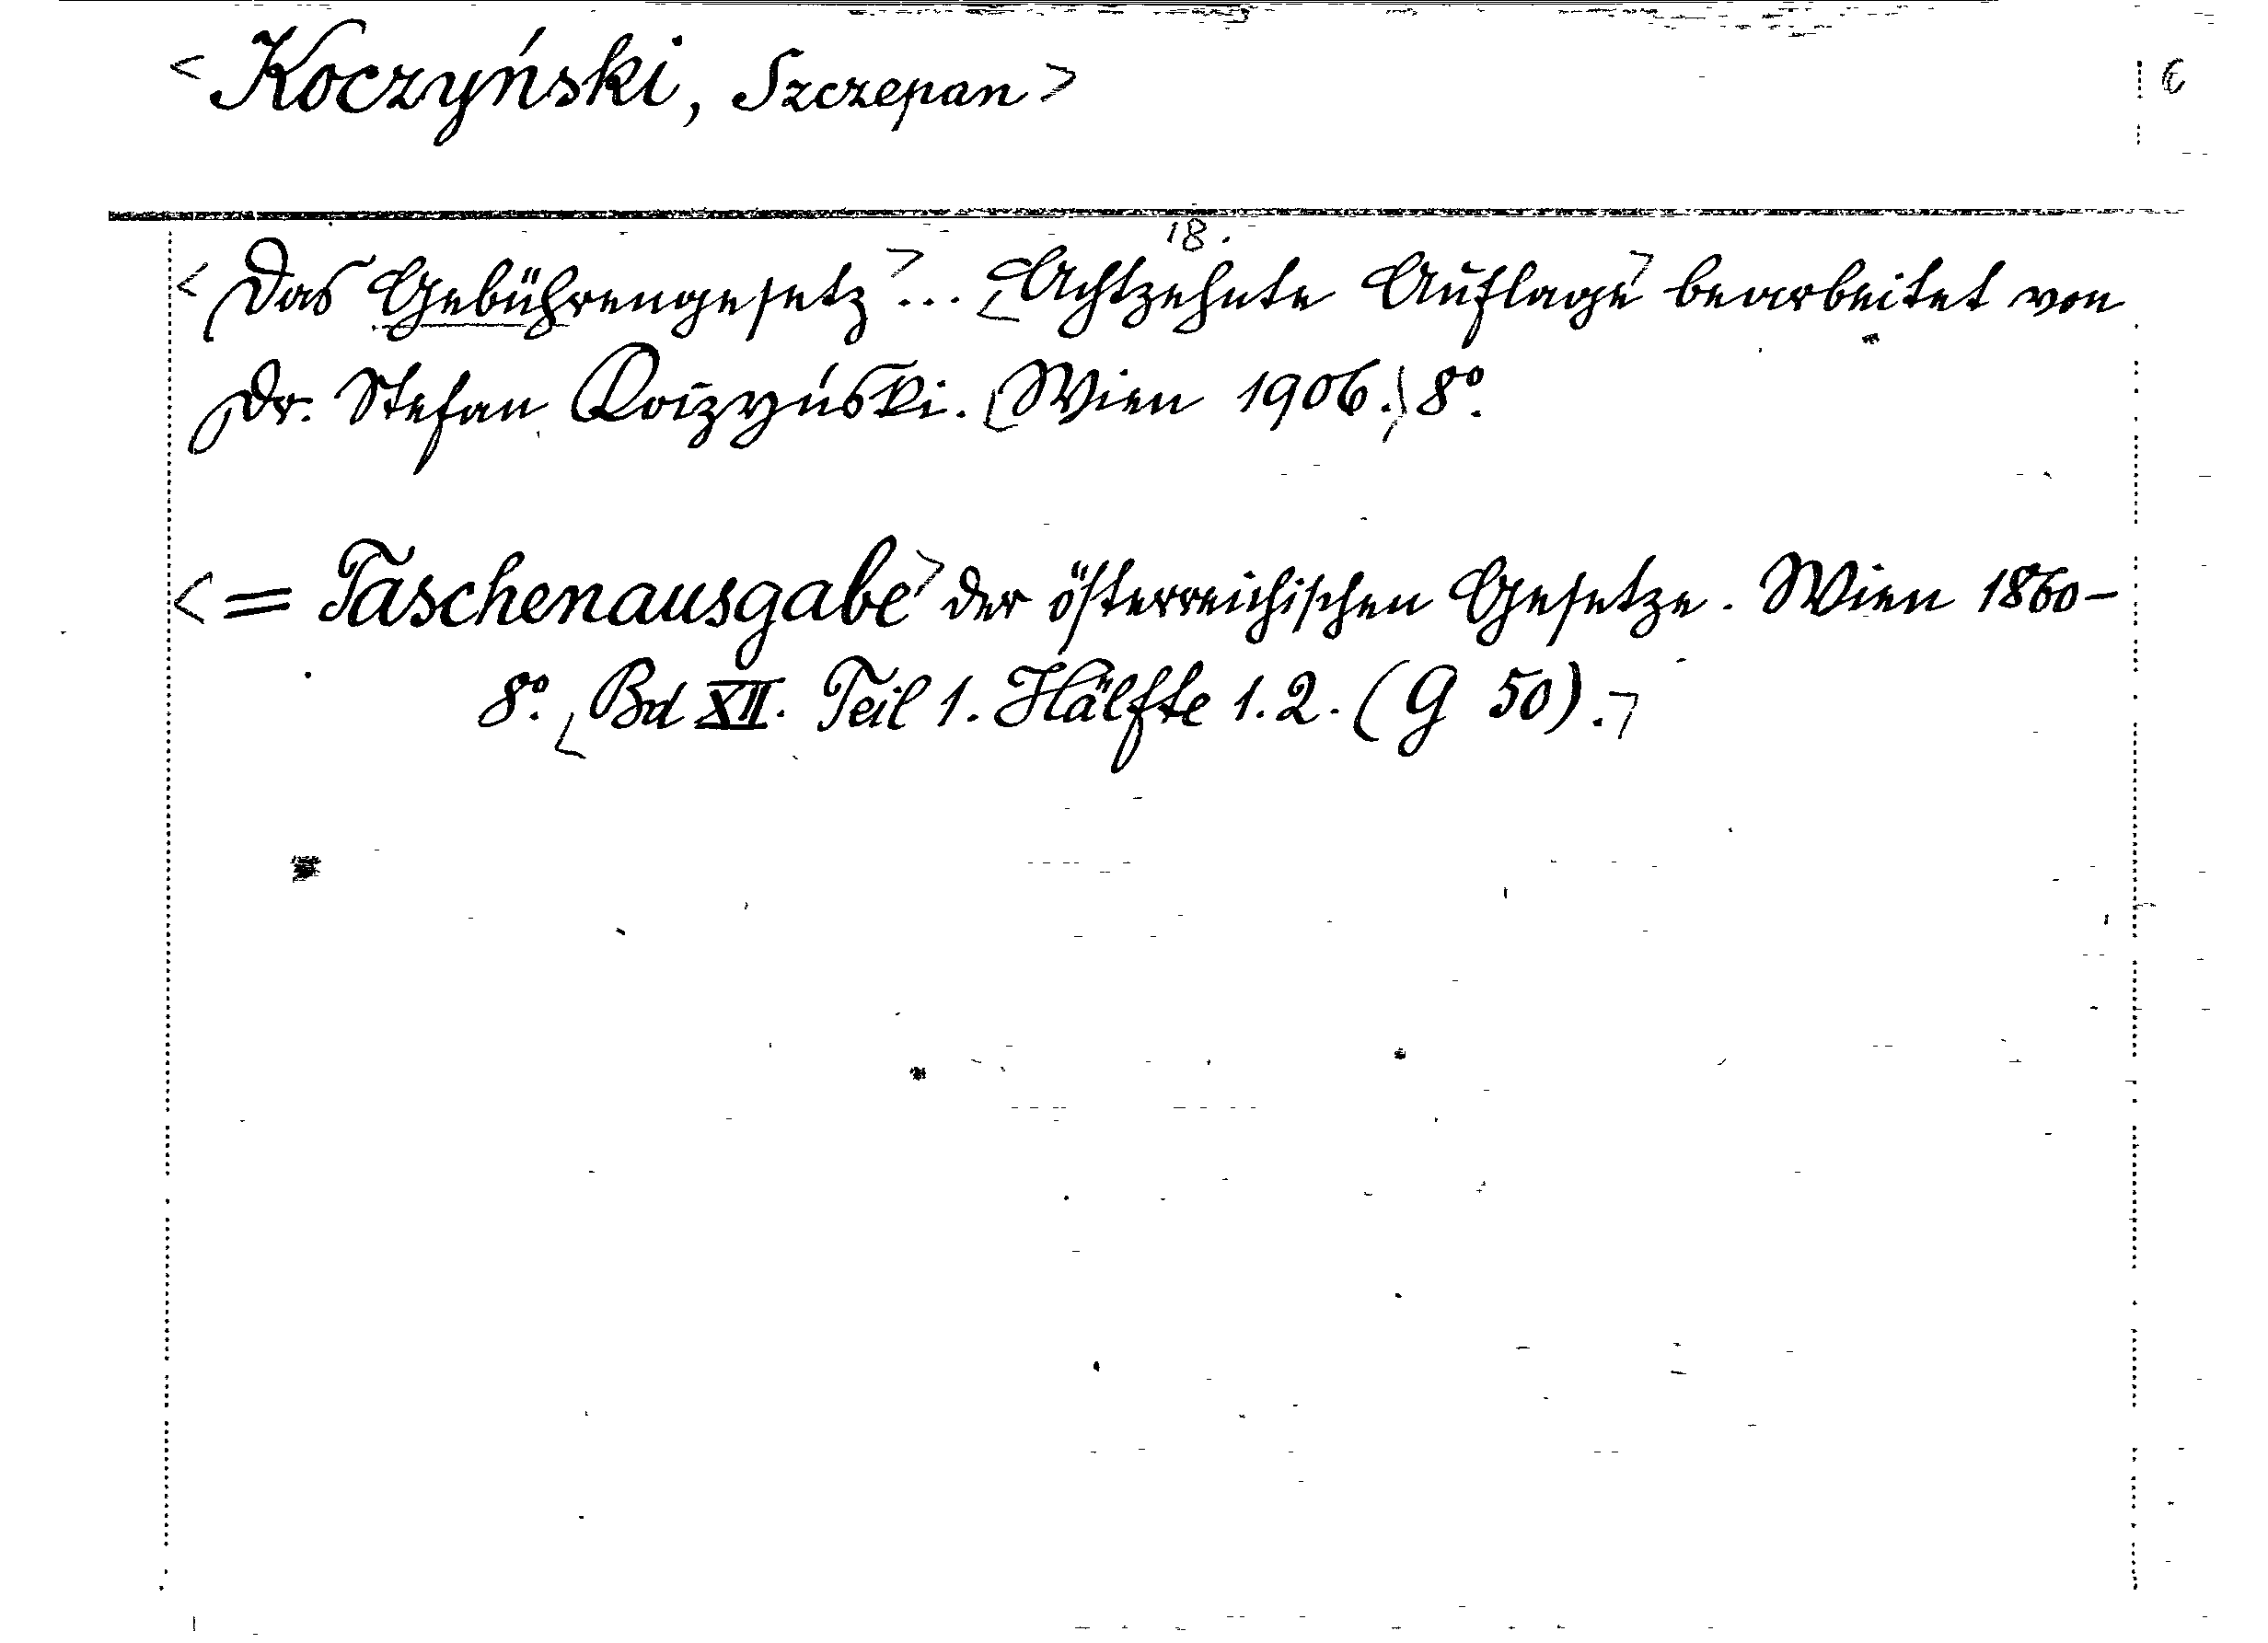 < Koczyński, Szczepan >
18.
< Das Gebührengesetz > ... < Achtzehnte Auflage > bearbeitet von
Dr. Stefan Koczyński. < Wien 1906. > 8°.
< = Taschenausgabe > der österreichischen Gesetze. Wien 1860-
8°. < Bd XII. Teil 1. Hälfte 1. 2. (G 50). >